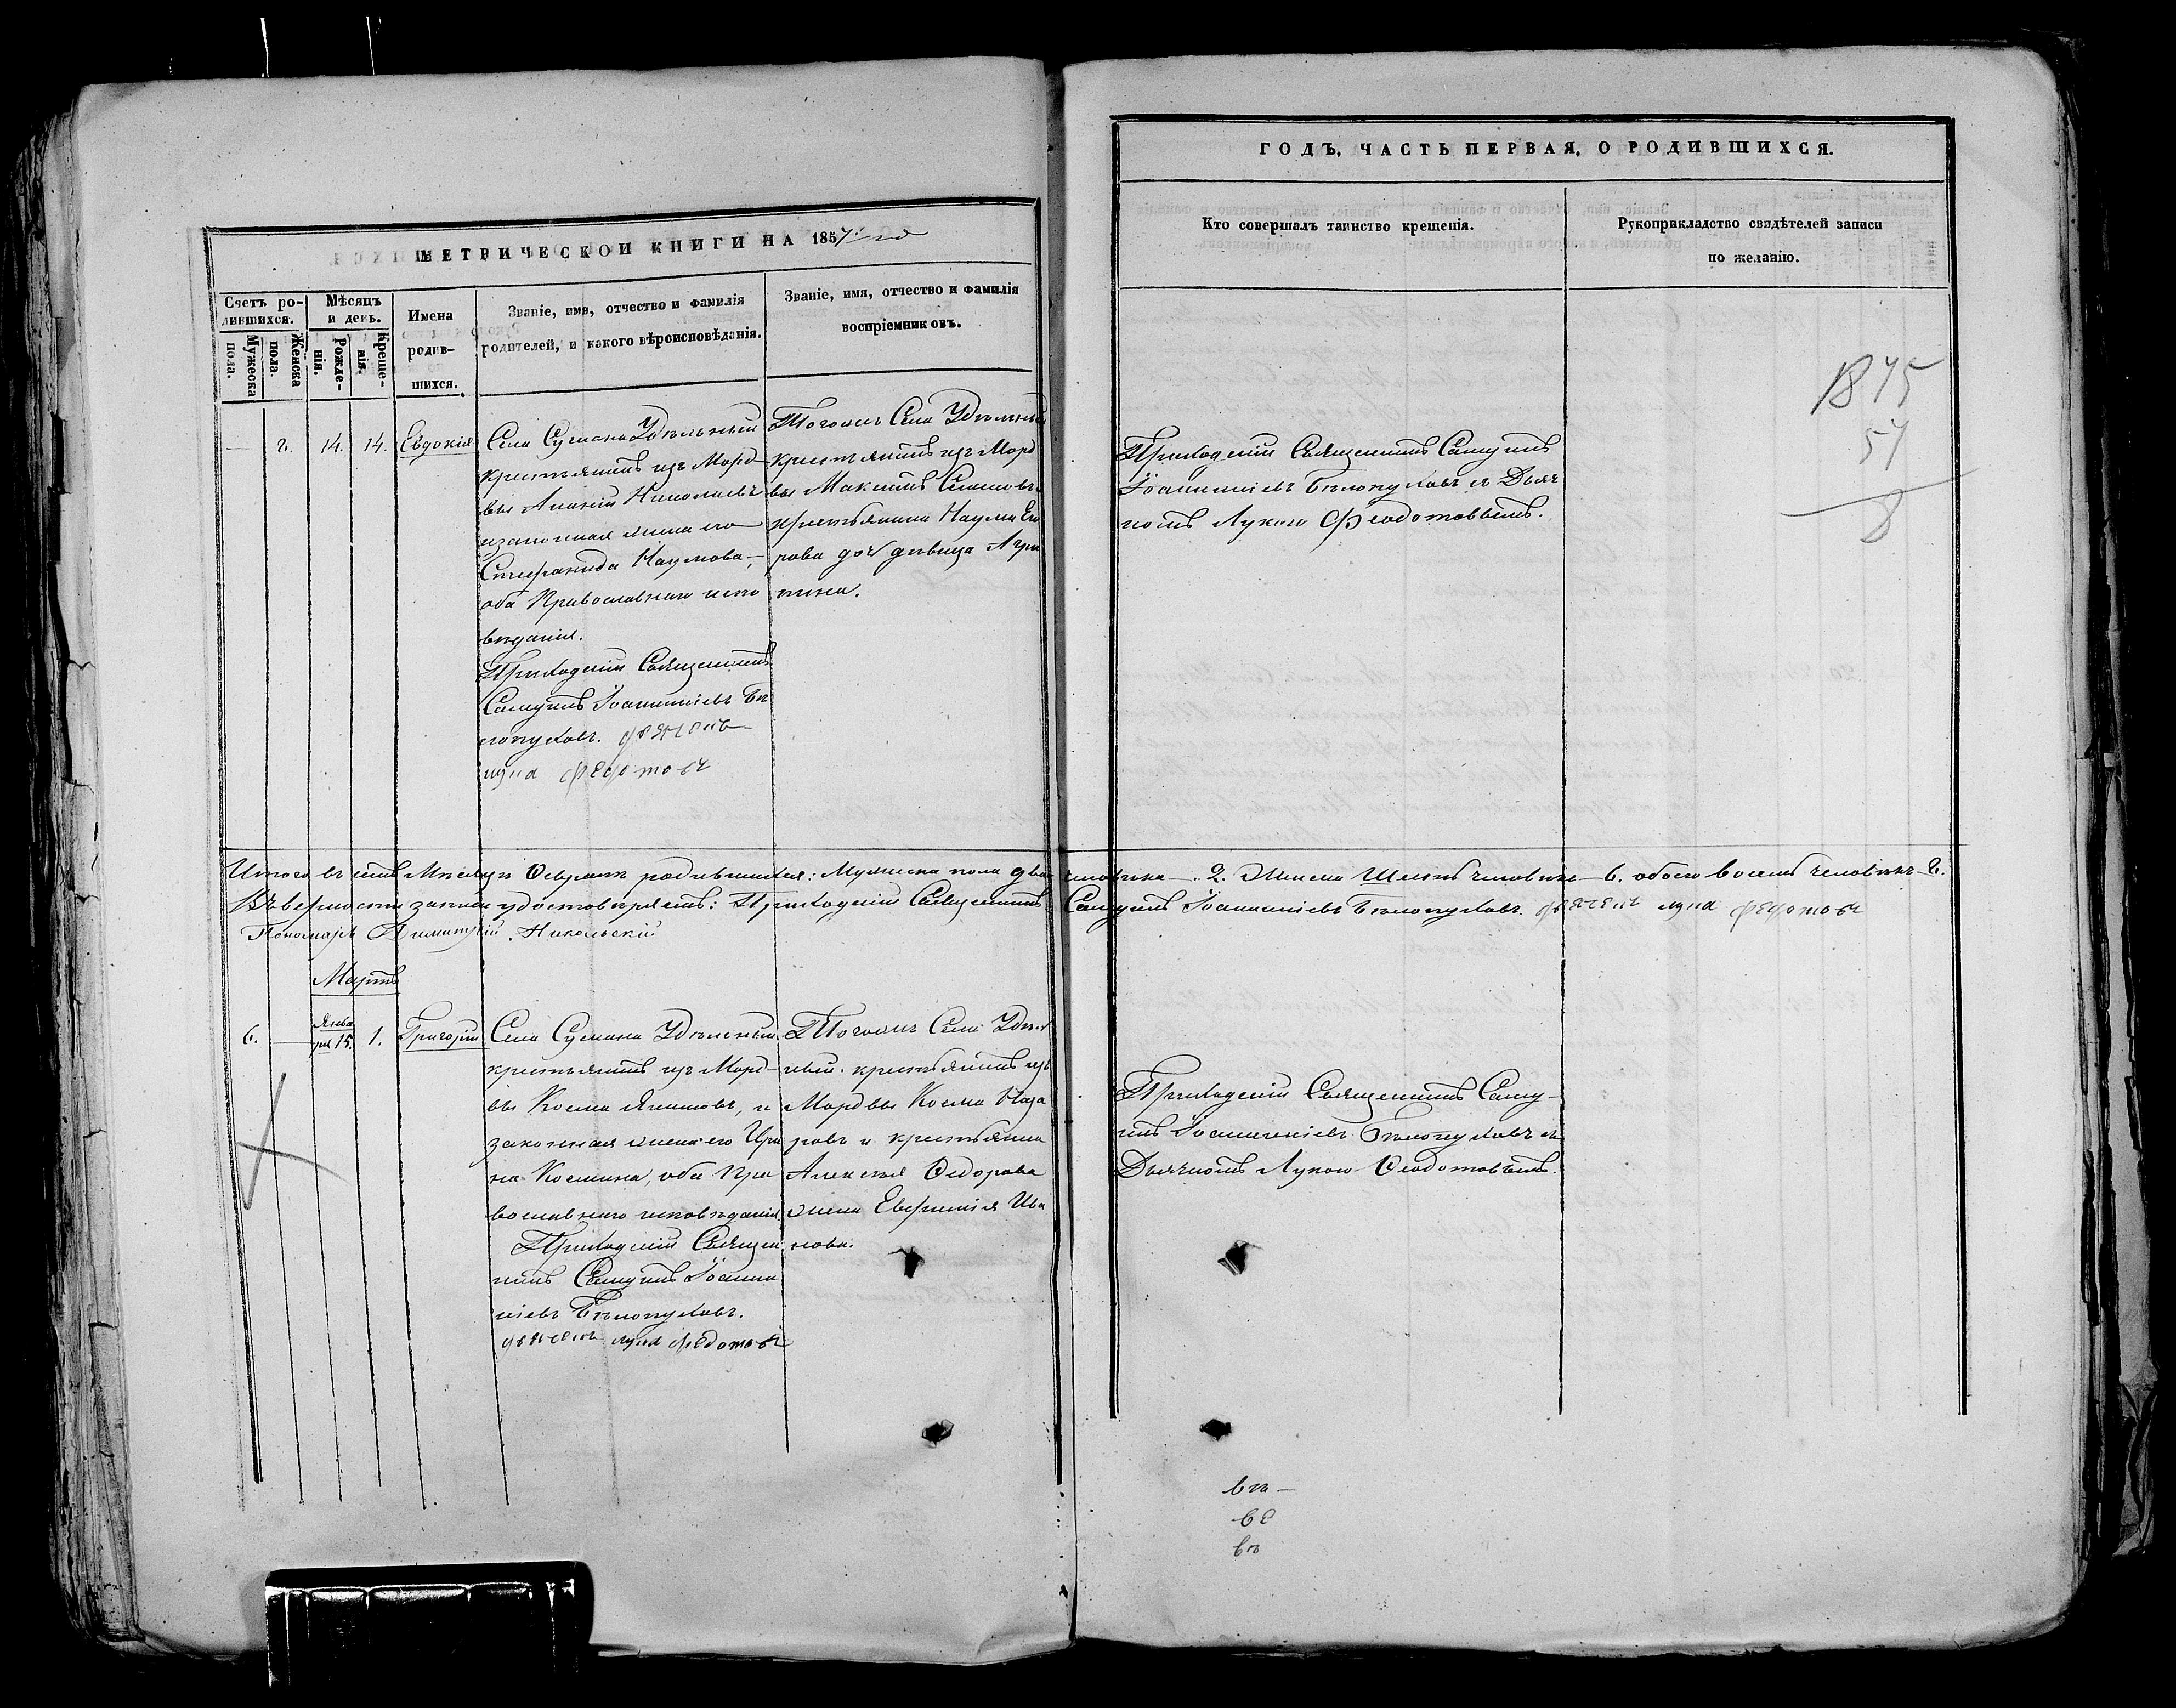 МЕТРИЧЕСКОЙ КНИГИ НА 1857 год
ГОДЪ, ЧАСТЬ ПЕРВАЯ, О РОДИВШИХСЯ.
Счетъ ро-
дившихся.
Мужеска
пола.
Женска
пола.
Мѣсяцъ
и день.
Рожде-
нія.
Креще-
нія.
Имена
родив-
шихся.
Званіе, имя, отчество и фамилія
родителей, и какого вѣроисповѣданія.
Званіе, имя, отчество и фамилія
воспріемниковъ.
Кто совершалъ таинство крещенія.
Рукоприкладство свидѣтелей записи
по желанію.
— 8. 14. 14. Евдокія
Села Сумана Удѣльный
крестьянинъ изъ Морд-
вы Ананій Николаевъ
и законная жена его
Стефанида Наумова,
оба Православнаго испо
вѣданія.
Приходскій Священникъ
Самуилъ Іоанникіевъ Бѣ
лопуховъ. дьячекъ
лука федотовъ
Тогожъ Села Удѣльный
крестьянинъ изъ Морд
вы Максимъ Семеновъ
крестьянина Наума Его
рова дочь девица Агри
пина.
Приходскій Священникъ Самуилъ
Іоанникіевъ Бѣлопуховъ съ Дьяч
комъ Лукою Феодотовымъ.
1875
57
8
Итого въ семъ Мѣсяцѣ Февралѣ родившихся: Мужеска пола два человѣка — 2. Женска Шесть человѣкъ — 6. обоего восемь человѣкъ 8.
Въ верности записи удостовѣряемъ: Приходскій Священникъ Самуилъ Іоанникіевъ Бѣлопуховъ. дьячекъ лука федотовъ
Пономарь Димитрій Никольскій
Мартъ
6. — Янва
ря 15. 1. Григорій
Села Сумана Удѣльный
крестьянинъ изъ Морд-
вы Косма Якимовъ, и
законная жена его Ири
на Космина, оба Пра
вославнаго исповѣданія.
Приходскій Священ
никъ Самуилъ Іоанни
кіевъ Бѣлопуховъ.
дьячекъ лука федотовъ
Тогожъ Села Удѣль
ный крестьянинъ изъ
Мордвы Косма Наза
ровъ и крестьянина
Алексѣя Федорова
жена Евфимія Ива
нова.
Приходскій Священникъ Саму-
илъ Іоанникіевъ Бѣлопуховъ съ
Дьячкомъ Лукою Феодотовымъ.
въ —
ве
въ